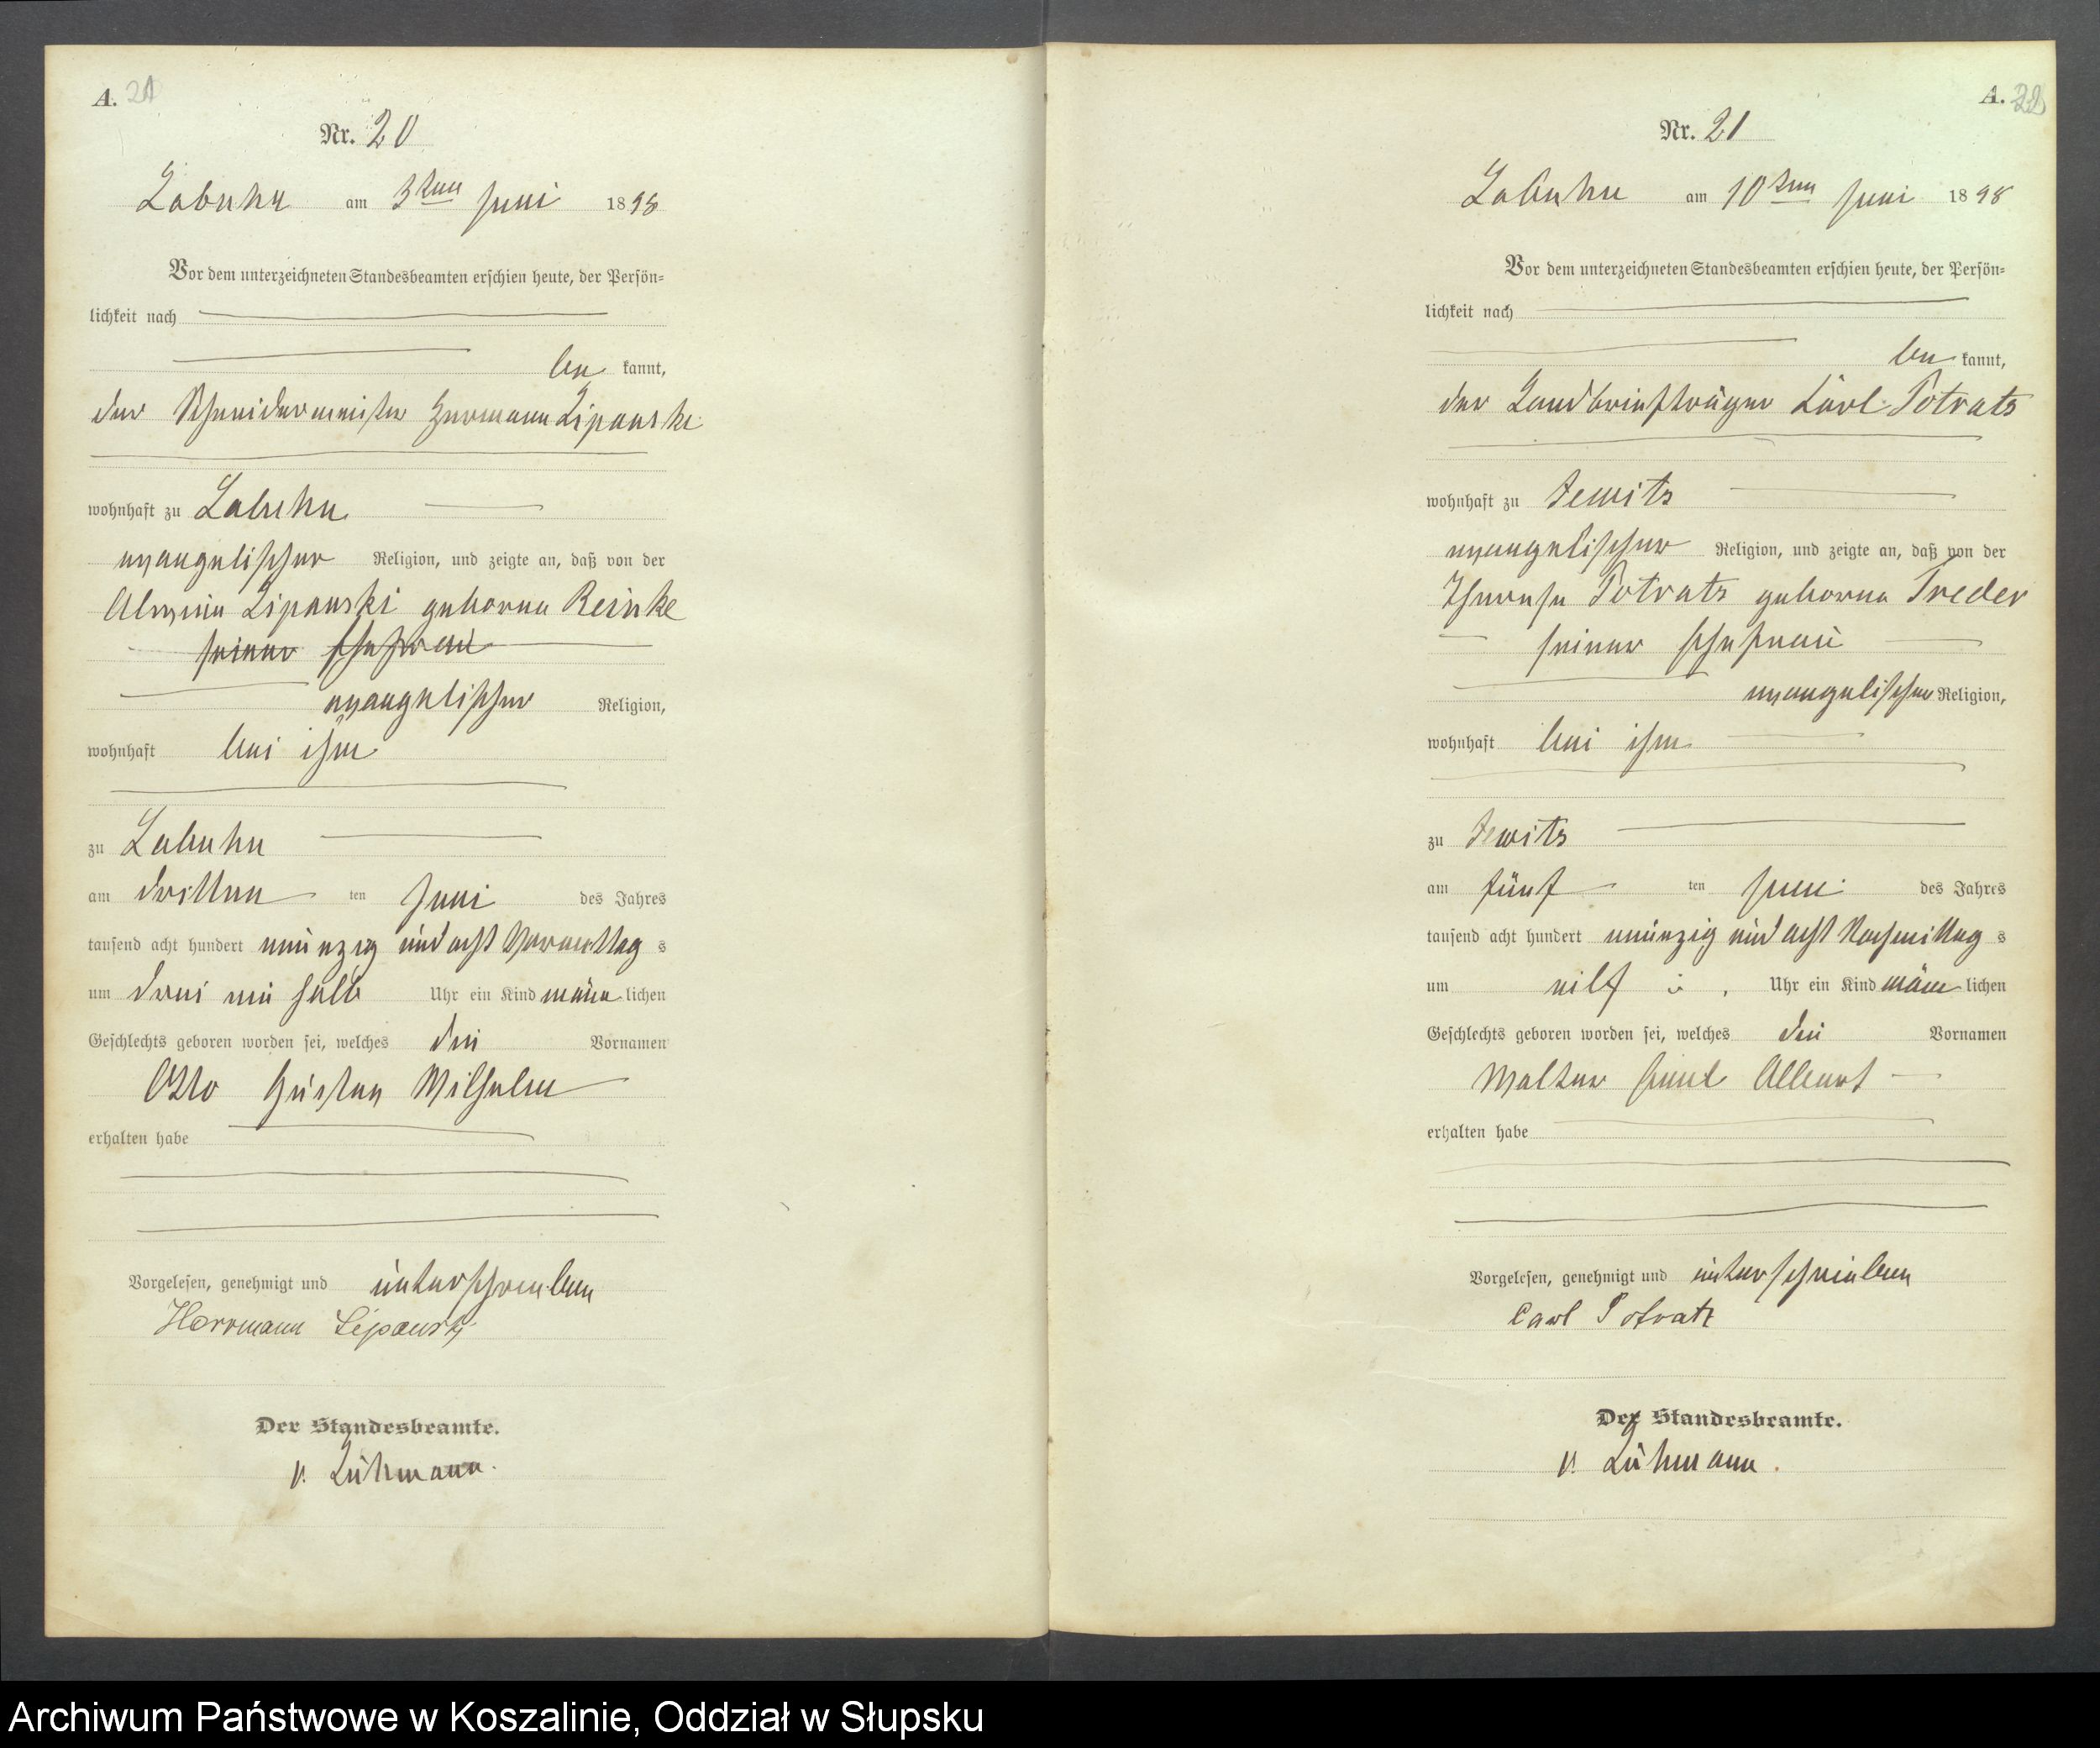 A. 21
Nr. 20
Labuhn am 3ten Juni 1898
Vor dem unterzeichneten Standesbeamten erschien heute, der Persön-
lichkeit nach
be kannt,
der Schneidermeister Hermann Lipanski
wohnhaft zu Labuhn
evangelischer Religion, und zeigte an, daß von der
Lipanski geborne Reinke
seiner Ehefrau
evangelischer Religion,
wohnhaft bei ihm
zu Labuhn
am dritten ten Juni des Jahres
tausend acht hundert neunzig und acht Vormittag s
um drei ein halb Uhr ein Kind männ lichen
Geschlechts geboren worden sei, welches die Vornamen
Otto Gustav Wilhelm
erhalten habe
Vorgelesen, genehmigt und unterschrieben
Herrmann Lipanski
Der Standesbeamte.
v. Lühmann.
A. 22
Nr. 21
Labuhn am 10ten Juni 1898
Vor dem unterzeichneten Standesbeamten erschien heute, der Persön-
lichkeit nach
be kannt,
der Landbriefträger Karl Potratz
wohnhaft zu Jewitz
evangelischer Religion, und zeigte an, daß von der
Therese Potratz geborne Treder
seiner Ehefrau
evangelischer Religion,
wohnhaft bei ihm
zu Jewitz
am fünf ten Juni des Jahres
tausend acht hundert neunzig und acht Nachmittag s
um elf Uhr ein Kind männ lichen
Geschlechts geboren worden sei, welches die Vornamen
Walter Paul Albert
erhalten habe
Vorgelesen, genehmigt und unterschrieben
Carl Potratz
Der Standesbeamte.
v. Lühmann.
Archiwum Państwowe w Koszalinie, Oddział w Słupsku